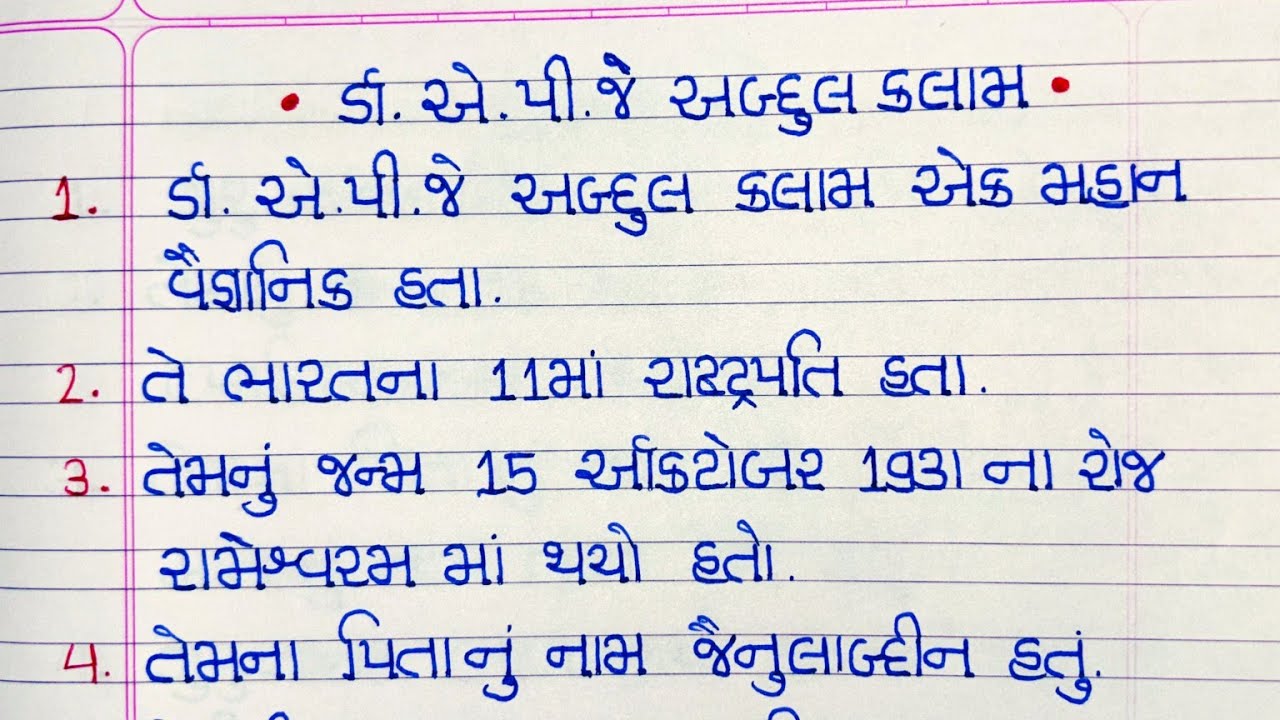 • ડૉ. એ. પી. જે અબ્દુલ કલામ •
1. ડૉ. એ. પી. જે અબ્દુલ કલામ એક મહાન
વૈજ્ઞાનિક હતા.
2. તે ભારતના 11માં રાષ્ટ્રપતિ હતા.
3. તેમનું જન્મ 15 ઑક્ટોબર 1931 ના રોજ
રામેશ્વરમ માં થયો હતો.
4. તેમના પિતાનું નામ જૈનુલાબ્દીન હતું.